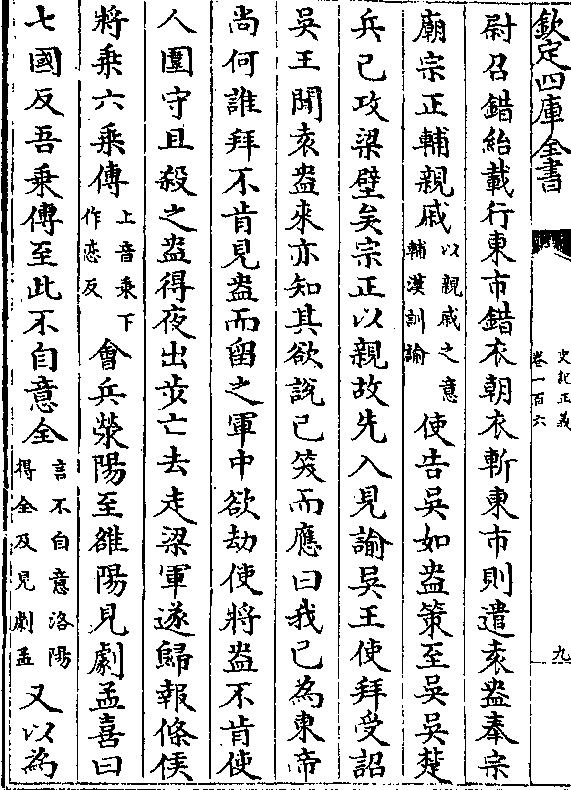 欽定四庫全書
史記正義
卷一百六
九
尉召錯紿載行東市錯衣朝衣斬東市則遣袁盎奉宗
廟宗正輔親戚以親戚之意輔漢訓諭使告吳如盎策至吳吳楚
兵已攻梁壁矣宗正以親故先入見諭吳王使拜受詔
吳王聞袁盎來亦知其欲說己笑而應曰我已為東帝
尚何誰拜不肯見盎而留之軍中欲劫使將盎不肯使
人圍守且殺之盎得夜出步亡去走梁軍遂歸報條侯
將乘六乘傳上音乘下作恋反會兵滎陽至雒陽見劇孟喜曰
七國反吾乘傳至此不自意全言不自意洛陽得全及見劇孟又以為